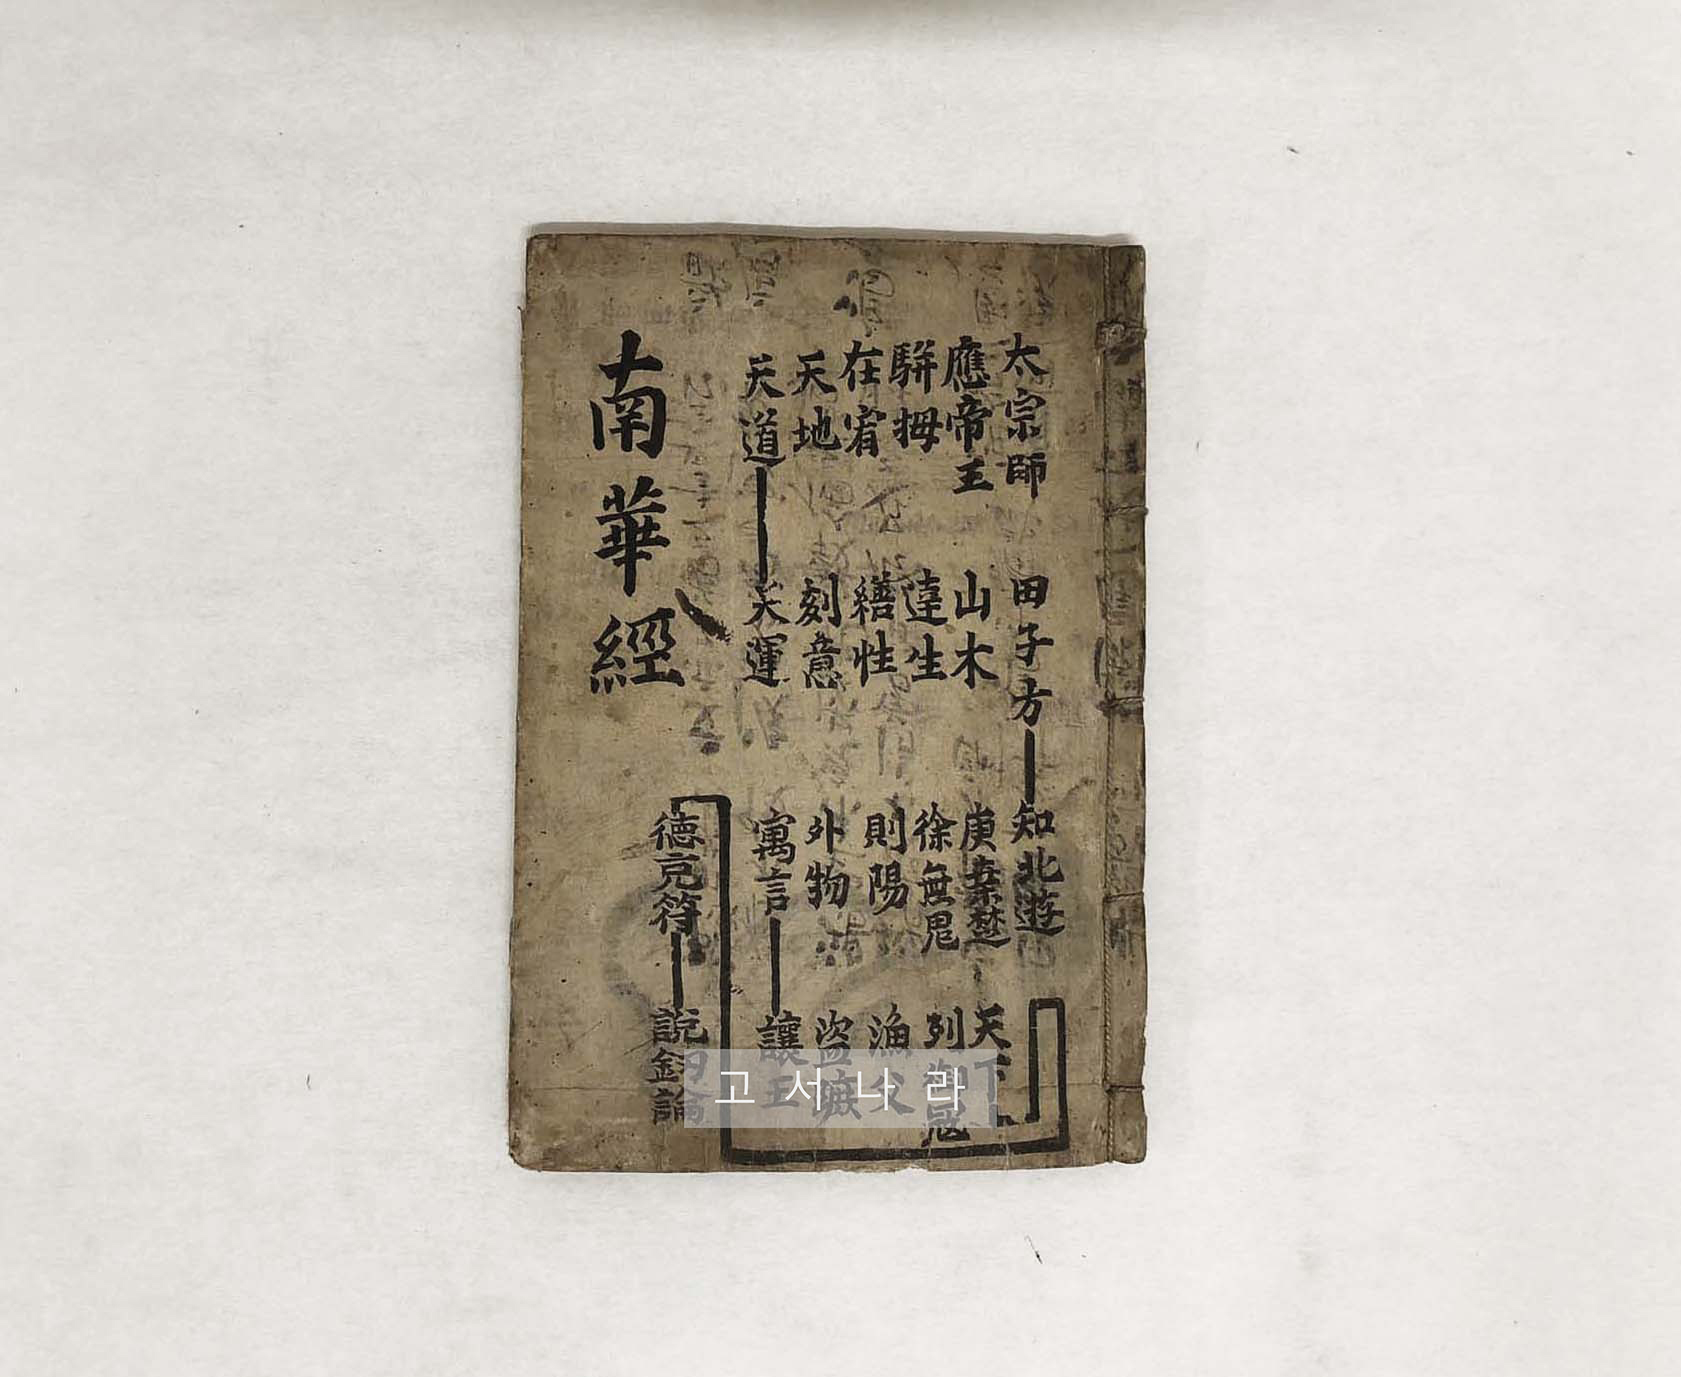 太宗師
應帝王
騈拇
在宥
天地
天道
田子方
山木
達生
繕性
刻意
天運
知北遊
庚桒楚
徐無鬼
則陽
外物
寓言
天下
列御冦
漁父
盗蹠
讓王
德充符
說釰論
南華經
고서나라